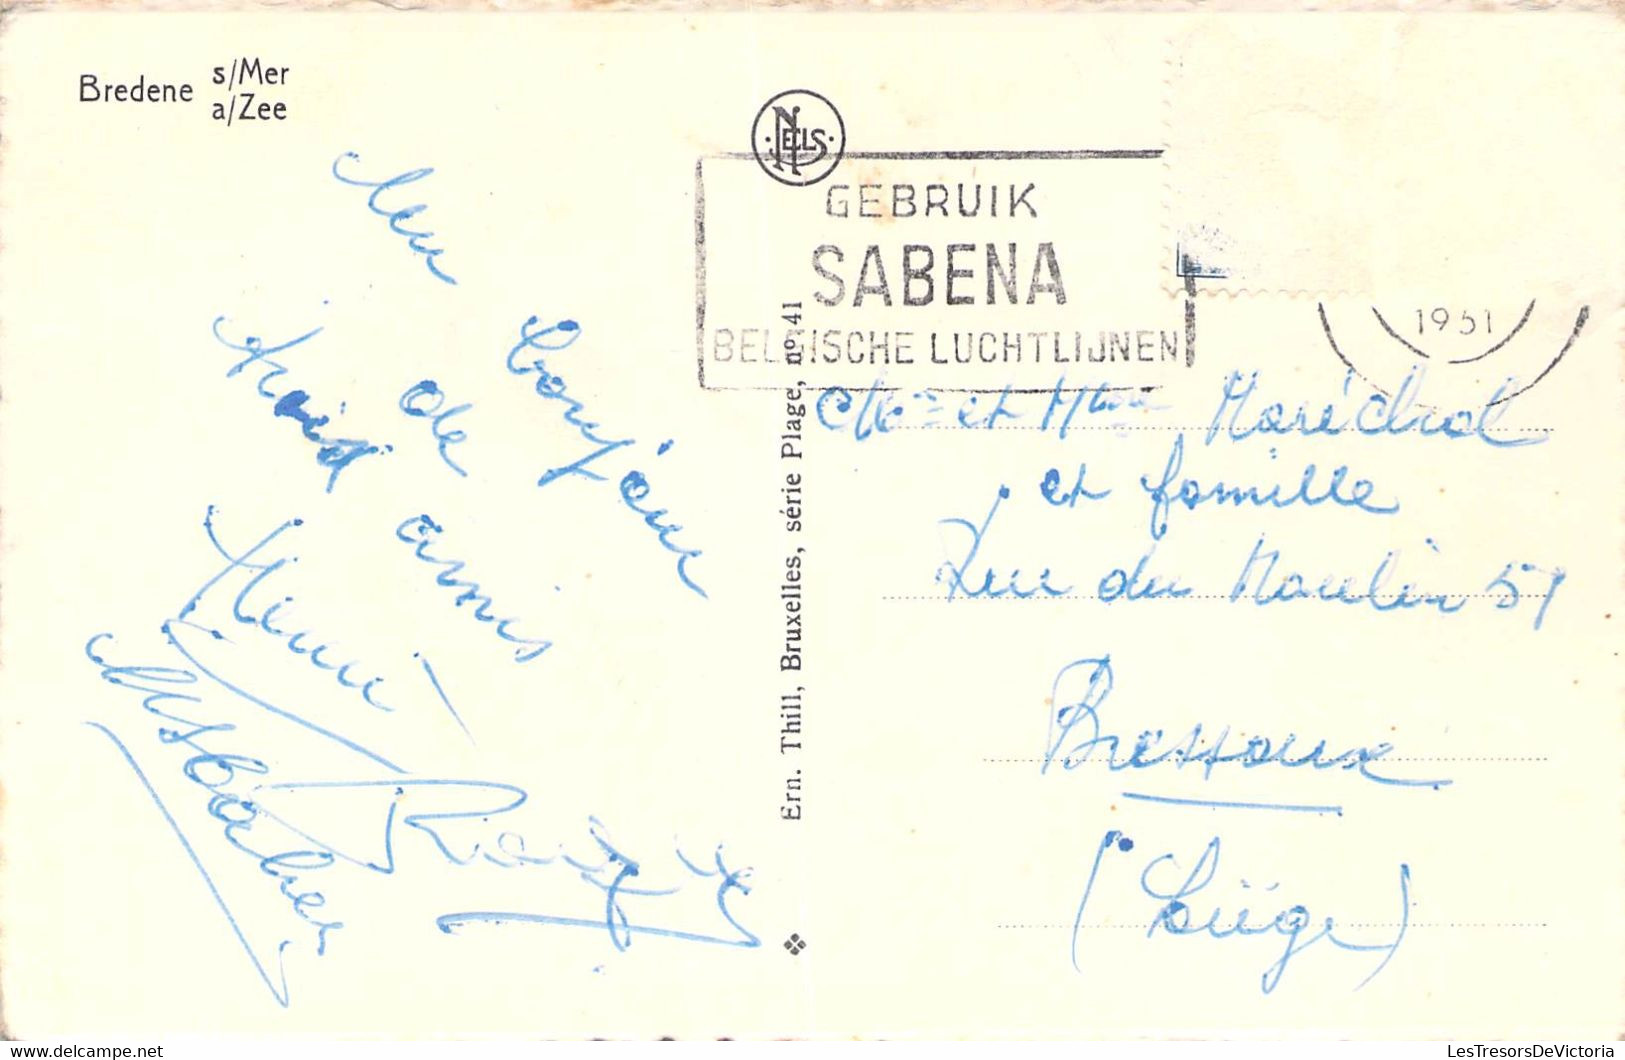 Bredene s/Mer
a/Zee
NELS
GEBRUIK
SABENA
BELGISCHE LUCHTLIJNEN
1951
Un bonjour
de
trois amis
Henri
Ern. Thill, Bruxelles, série Plage, nº 41
Mr et Mme Maréchal
et famille
Rue du Moulin 57
Bressoux
(Liège)
LesTresorsDeVictoria
LesTresorsDeVictoria.com